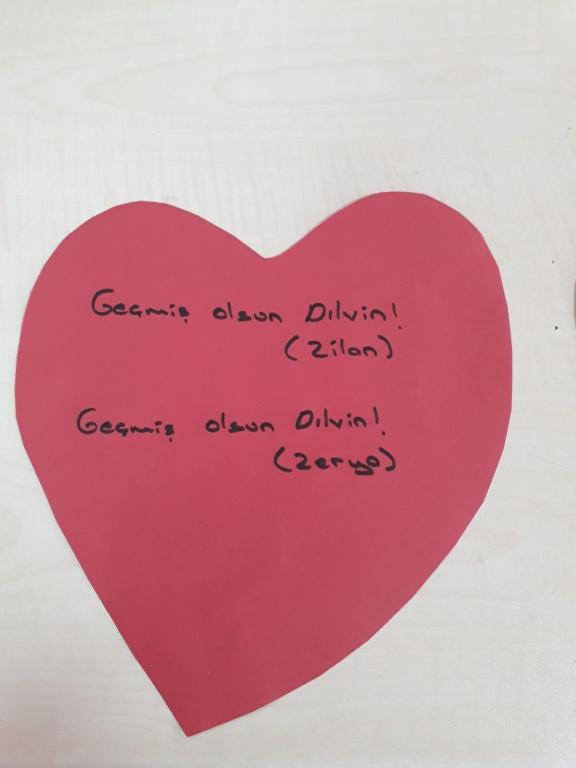 Geçmiş olsun Dılvin!
(Zilan)
Geçmiş olsun Dılvin!
(Zerya)